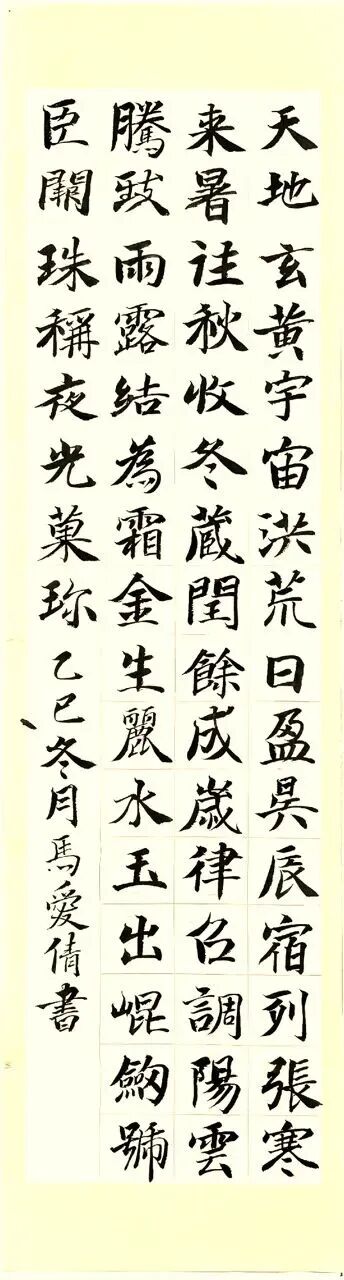 天地玄黃宇宙洪荒日盈昃辰宿列張寒
来暑往秋收冬蔵閏餘成歲律召調陽雲
騰致雨露結為霜金生麗水玉出崐劒號
臣闕珠稱夜光菓珎
乙巳冬月馬愛倩書